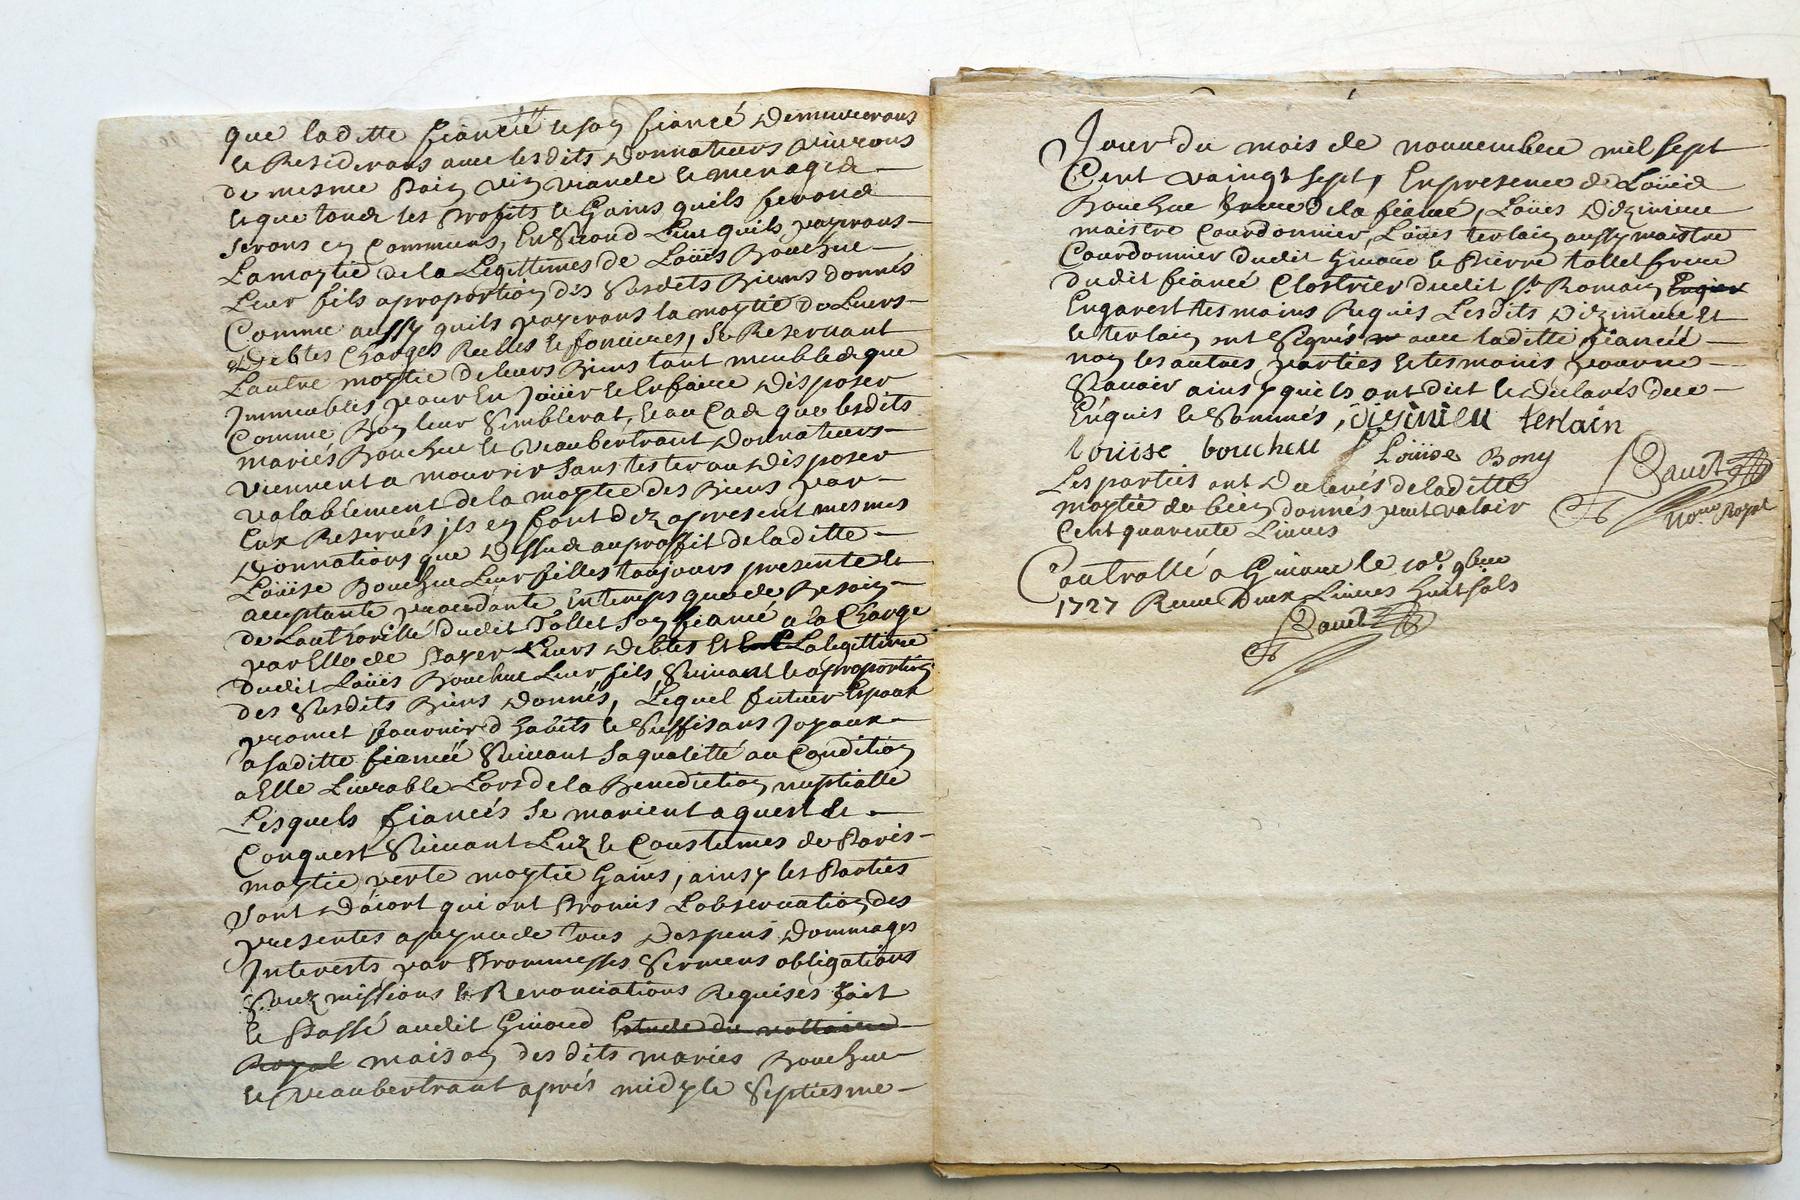 que laditte fiancée & son fiancé Demeurerons
& Residerons avec lesdits Donnateurs vivrons
de mesme Pain vin viande & menages
& que tous les Profits & Gains quils ferons
serons en Communs, En Second Lieu quils payrons
La moytié de la Legittimes de Loüis Bouchue
Leur fils aproportion des Susdits Biens donnés
Comme aussy quils payerons la moytié de Leurs
debtes Charges Reelles & foncieres, Se Reservant
Lautre moytié de leurs Biens tant meubles que
Immeubles pour En Joüir & En faire disposer
Comme Bon leur Semblerat, & au Cas que lesdits
mariés Bouchue & Viaubertraut Donnateurs
viennent a mourrir sans tester ou disposer
valablement de la moytié des Biens par
Eux Reservés ils en font dez apresent mesmes
Donnations que Dessus au proffit de laditte
Loüise Bouchue Leur filles toujours presente &
acceptante procedante En temps que de Besoin
de Lauthorité dudit Tollet son fiancé a la Charge
par Elle de Payer Leurs debtes Et La legittime
dudit Loüis Bouchue Leur fils, Suivant & a proportion
des Susdits Biens Donnés, Lequel futur Epoux
promet fournir d'habits & Suffisans Joyaux
a saditte fiancée Suivant sa qualitté ou Condition
a Elle Livrable Lors de la Benediction nuptialle
Lesquels fiancés se marient aquest &
Conquest Suivant Luz & Coustumes de Paris
moytié perte moytié Gains, ainsy les Parties
sont D'acort qui ont Promis L'observation des
presentes a peyne de tous Despens Dommages
Interests par Prommesses Sermens obligations
Souz missions & Renonciations Requises fait
& Passé audit Givord Estude du nottaire
Royal maison des dits mariés Bouchue
& Viaubertraut aprés midy le Septiesme
Jour du mois de nouvembre mil sept
Cent vaingt sept, En presence de Loüis
Bouchue frere de la fiancé, Loüis Dizimieu
maistre Courdonnier, Loüis terlain aussy maistre
Courdonnier dudit Givord & Pierre tollet frere
dudit fiancé Clostrier dudit St. Romain
En garest tesmoins Requis Lesdits Dizimieu Et
& terlain ont Signés avec laditte fiancée
non les autres parties & tesmoins pour ne
Scavoir ainsy quils ont dict & declarés de ce
Enquis & Sommés, disimieu terlain
louïse boucheu Loüise Bony
Les parties ont declarés de laditte
moytié de bien donnés peut valoir
Cent quarente Livres
nore. Royal
Controllé a Givord le 10e. 9bre
1727 Receu Deux Livres huit sols